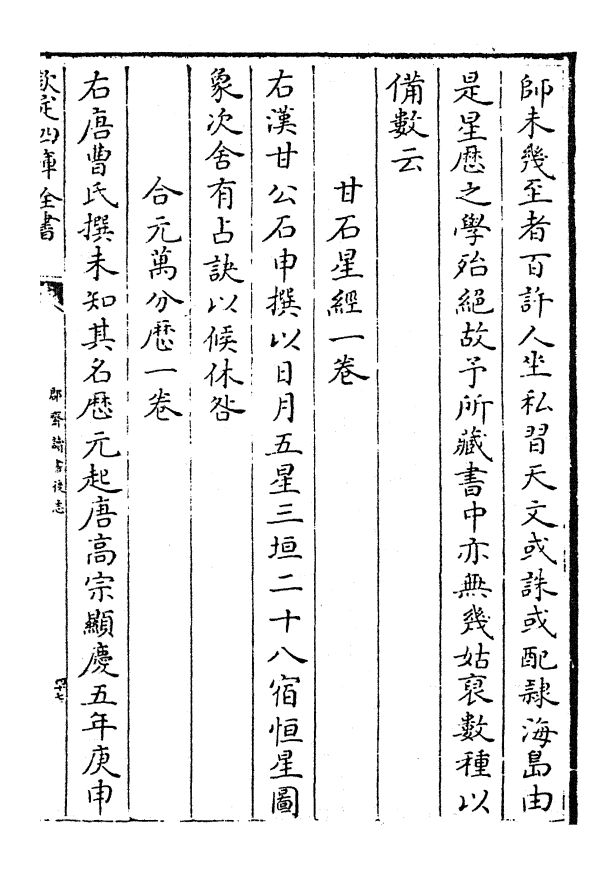 師未幾至者百許人坐私習天文或誅或配隷海島由
是星厯之學殆絕故予所藏書中亦無幾姑裒數種以
備數云
甘石星經一卷
右漢甘公石申撰以日月五星三垣二十八宿恒星圖
象次舍有占訣以候休咎
合元萬分厯一卷
右唐曹氏撰未知其名厯元起唐高宗顯慶五年庚申
欽定四庫全書
郡齋讀書後志